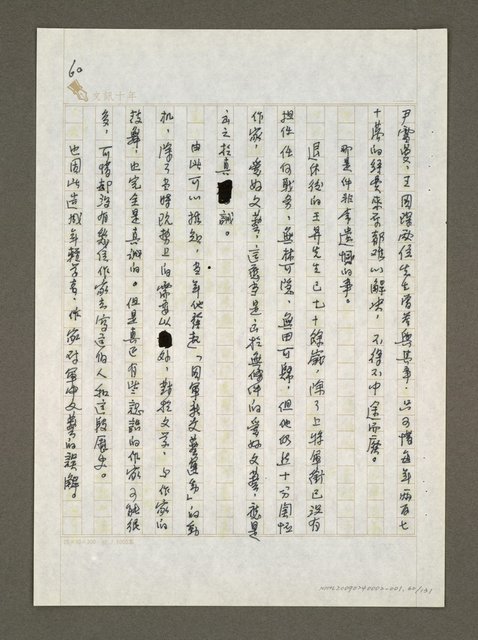 60
文訊十年
尹雪曼、王國璠兩位先生曾著興其事，只可惜每年兩百七
十萬的經費來源都難以解決，不得不中途而廢。
那是件非常遺憾的事。
退休後的王昇先生已七十餘歲，除了上將軍銜已沒有
擔任任何職務，無林可隱，無田可歸，但他仍是十分關懷
作家，愛好文藝，這應當是出於無條件的愛好文藝，應是
出之於真誠。
由此可以推知，當年他發起「國軍新文藝運動」的動
機，除了當時既勢上的需要以外，對於文學、與作家的
鼓舞，也完全是真誠的。但是真正有些認識的作家可能很
多，可惜卻沒有幾位作家去寫這個人和這段歷史。
也因此造成年輕學者、作家對軍中文藝的誤解。
25×12＝300
NMTL20090240002-001, 60/131